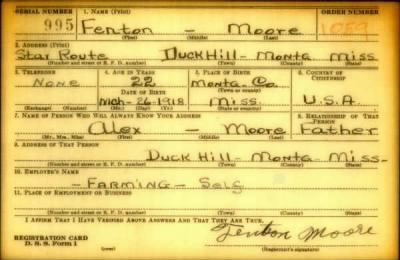 SERIAL NUMBER 1. NAME (Print) ORDER NUMBER
995 Fenton - Moore 1059
(First) (Middle) (Last)
2. ADDRESS (Print)
Star Route Duck Hill - Monta Miss
(Number and street or R. F. D. number) (Town) (County) (State)
3. TELEPHONE 4. AGE IN YEARS 5. PLACE OF BIRTH 6. COUNTRY OF CITIZENSHIP
None 22 Monta. Co.
DATE OF BIRTH (Town or county)
Mch-26-1918 Miss. U.S.A.
(Exchange) (Number) (Mo.) (Day) (Yr.) (State or country)
7. NAME OF PERSON WHO WILL ALWAYS KNOW YOUR ADDRESS 8. RELATIONSHIP OF THAT PERSON
Alex - Moore Father
(Mr., Mrs., Miss) (First) (Middle) (Last)
9. ADDRESS OF THAT PERSON
Duck Hill - Monta - Miss-
(Number and street or R. F. D. number) (Town) (County) (State)
10. EMPLOYER'S NAME
- Farming - Self
11. PLACE OF EMPLOYMENT OR BUSINESS
(Number and street or R. F. D. number) (Town) (County) (State)
I AFFIRM THAT I HAVE VERIFIED ABOVE ANSWERS AND THAT THEY ARE TRUE.
REGISTRATION CARD Fenton Moore
D. S. S. Form 1 (Registrant's signature)